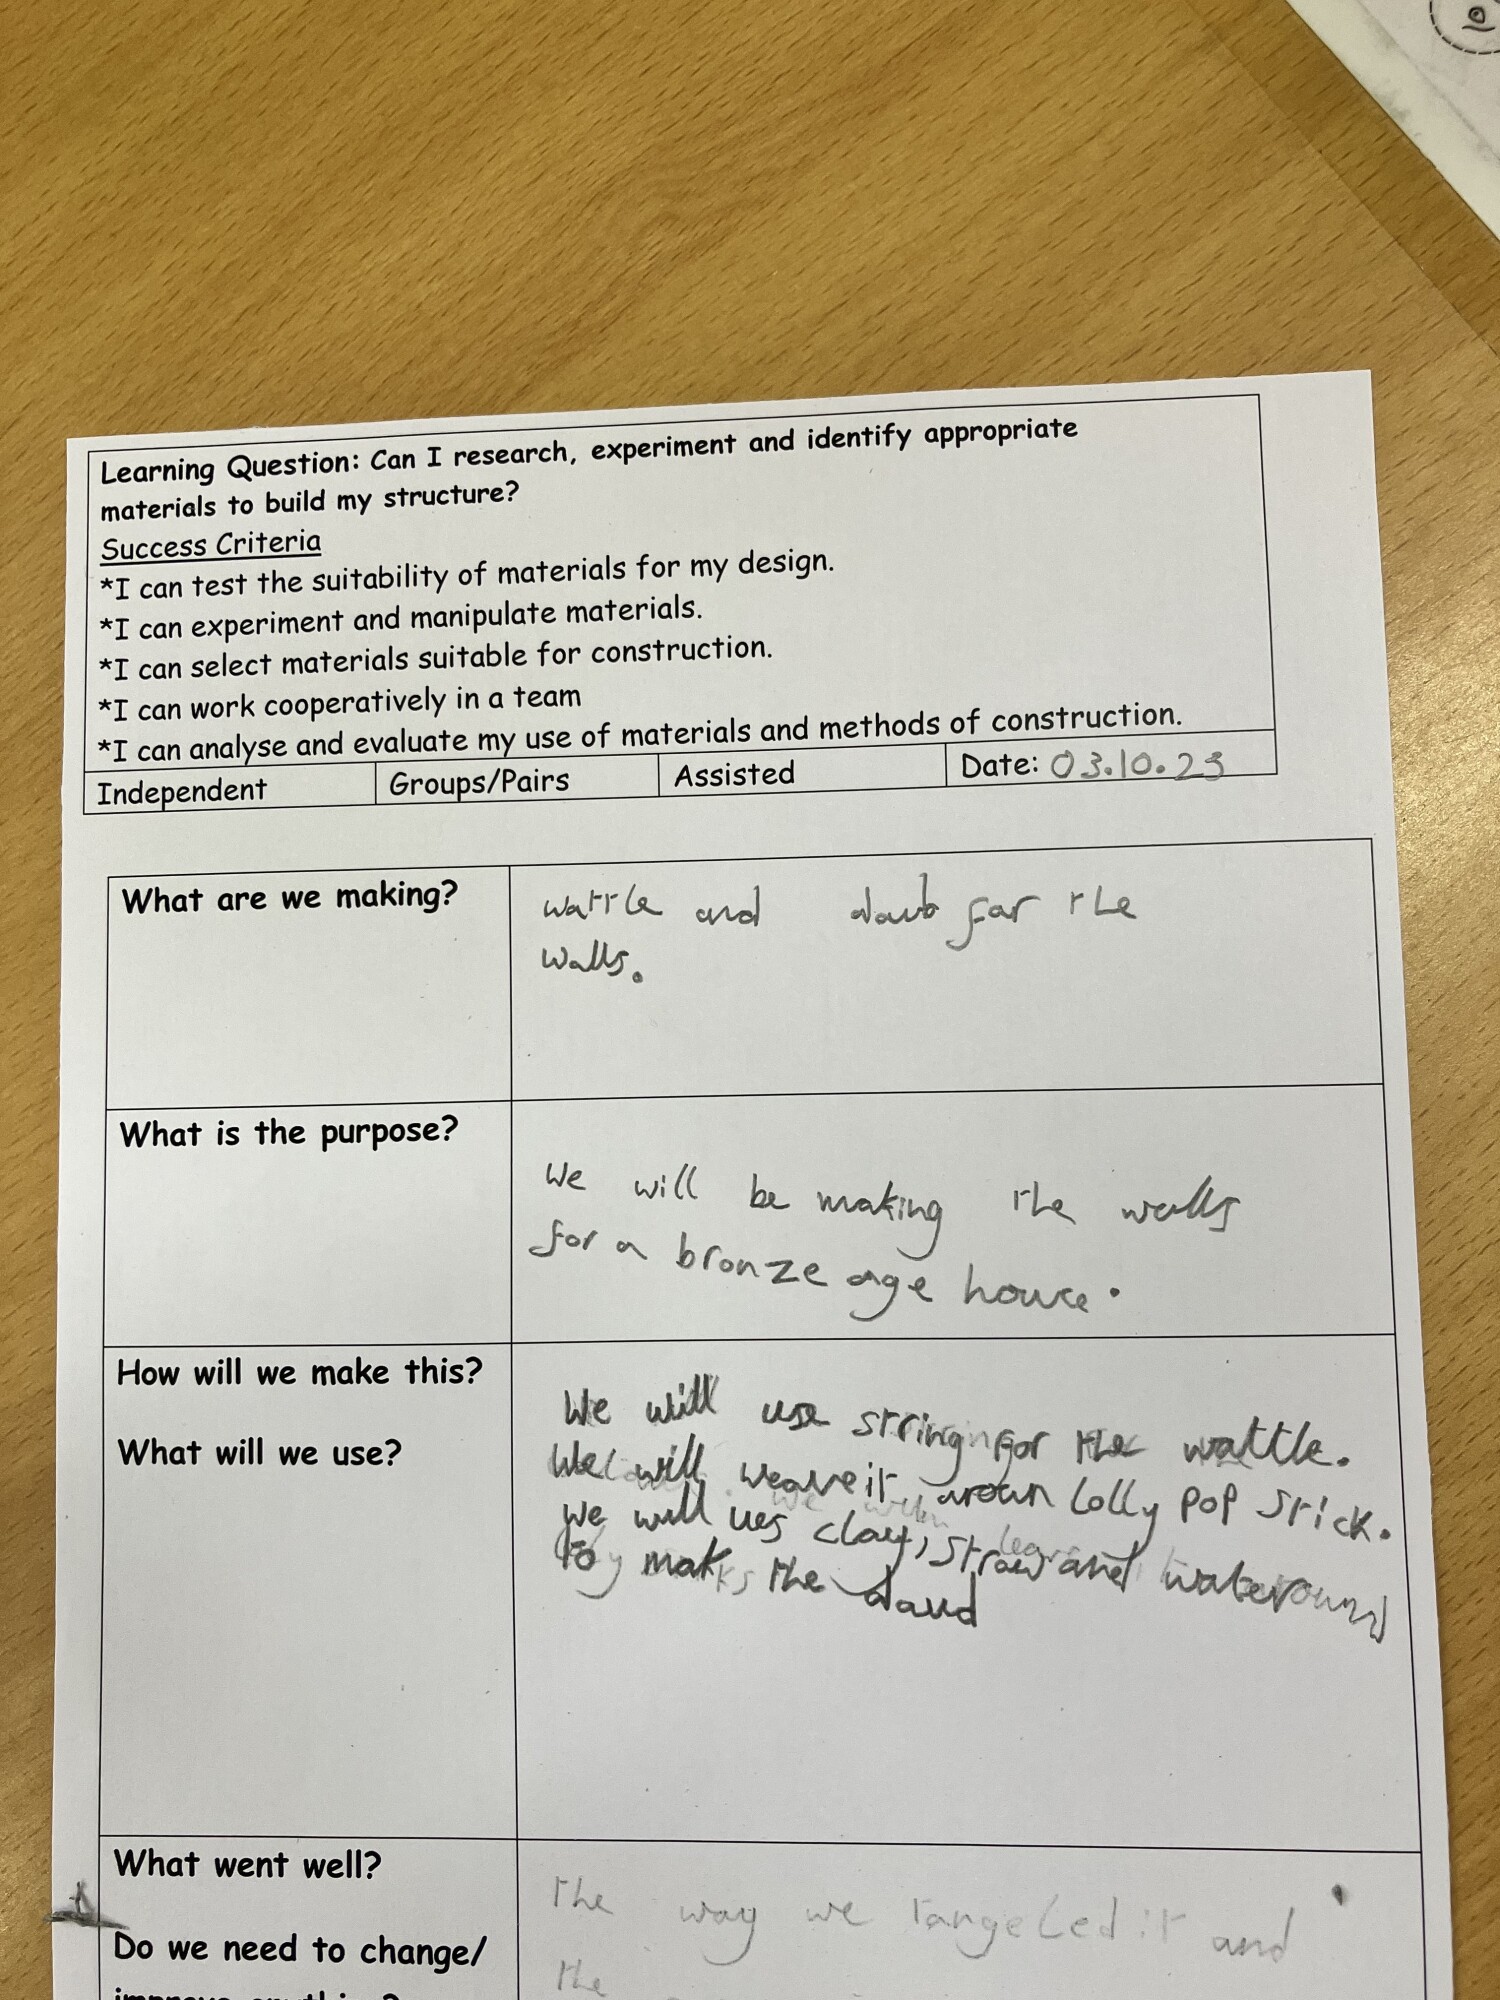 Learning Question: Can I research, experiment and identify appropriate
materials to build my structure?
Success Criteria
*I can test the suitability of materials for my design.
*I can experiment and manipulate materials.
*I can select materials suitable for construction.
*I can work cooperatively in a team
*I can analyse and evaluate my use of materials and methods of construction.
Independent Groups/Pairs Assisted Date: 03.10.23
What are we making?
wattle and daub for the
walls.
What is the purpose?
We will be making the walls
for a bronze age house.
How will we make this?
What will we use?
We will use string for the wattle.
We will weave it aroun lolly pop stick.
we will ues clay, straw and water
to mak the daud
What went well?
the way we tangeled it and
the
Do we need to change/
improve anything?